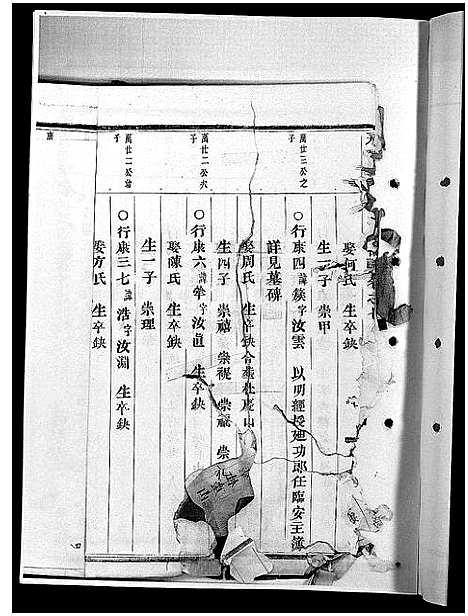 娶何氏 生卒缺
生一子 崇甲
萬廿三公之子
○行康四諱鎂字汝雲 以明經授廸功郎任臨安主簿
詳見墓碑
娶周氏 生卒缺合葬杜慶山
生四子 崇禧 崇褆 崇禩 崇
萬廿二公六子
○行康六諱犖字汝直 生卒缺
娶陳氏 生卒缺
生一子 崇理
萬廿二公
子
○行康三七諱浩字汝淵 生卒缺
娶方氏 生卒缺